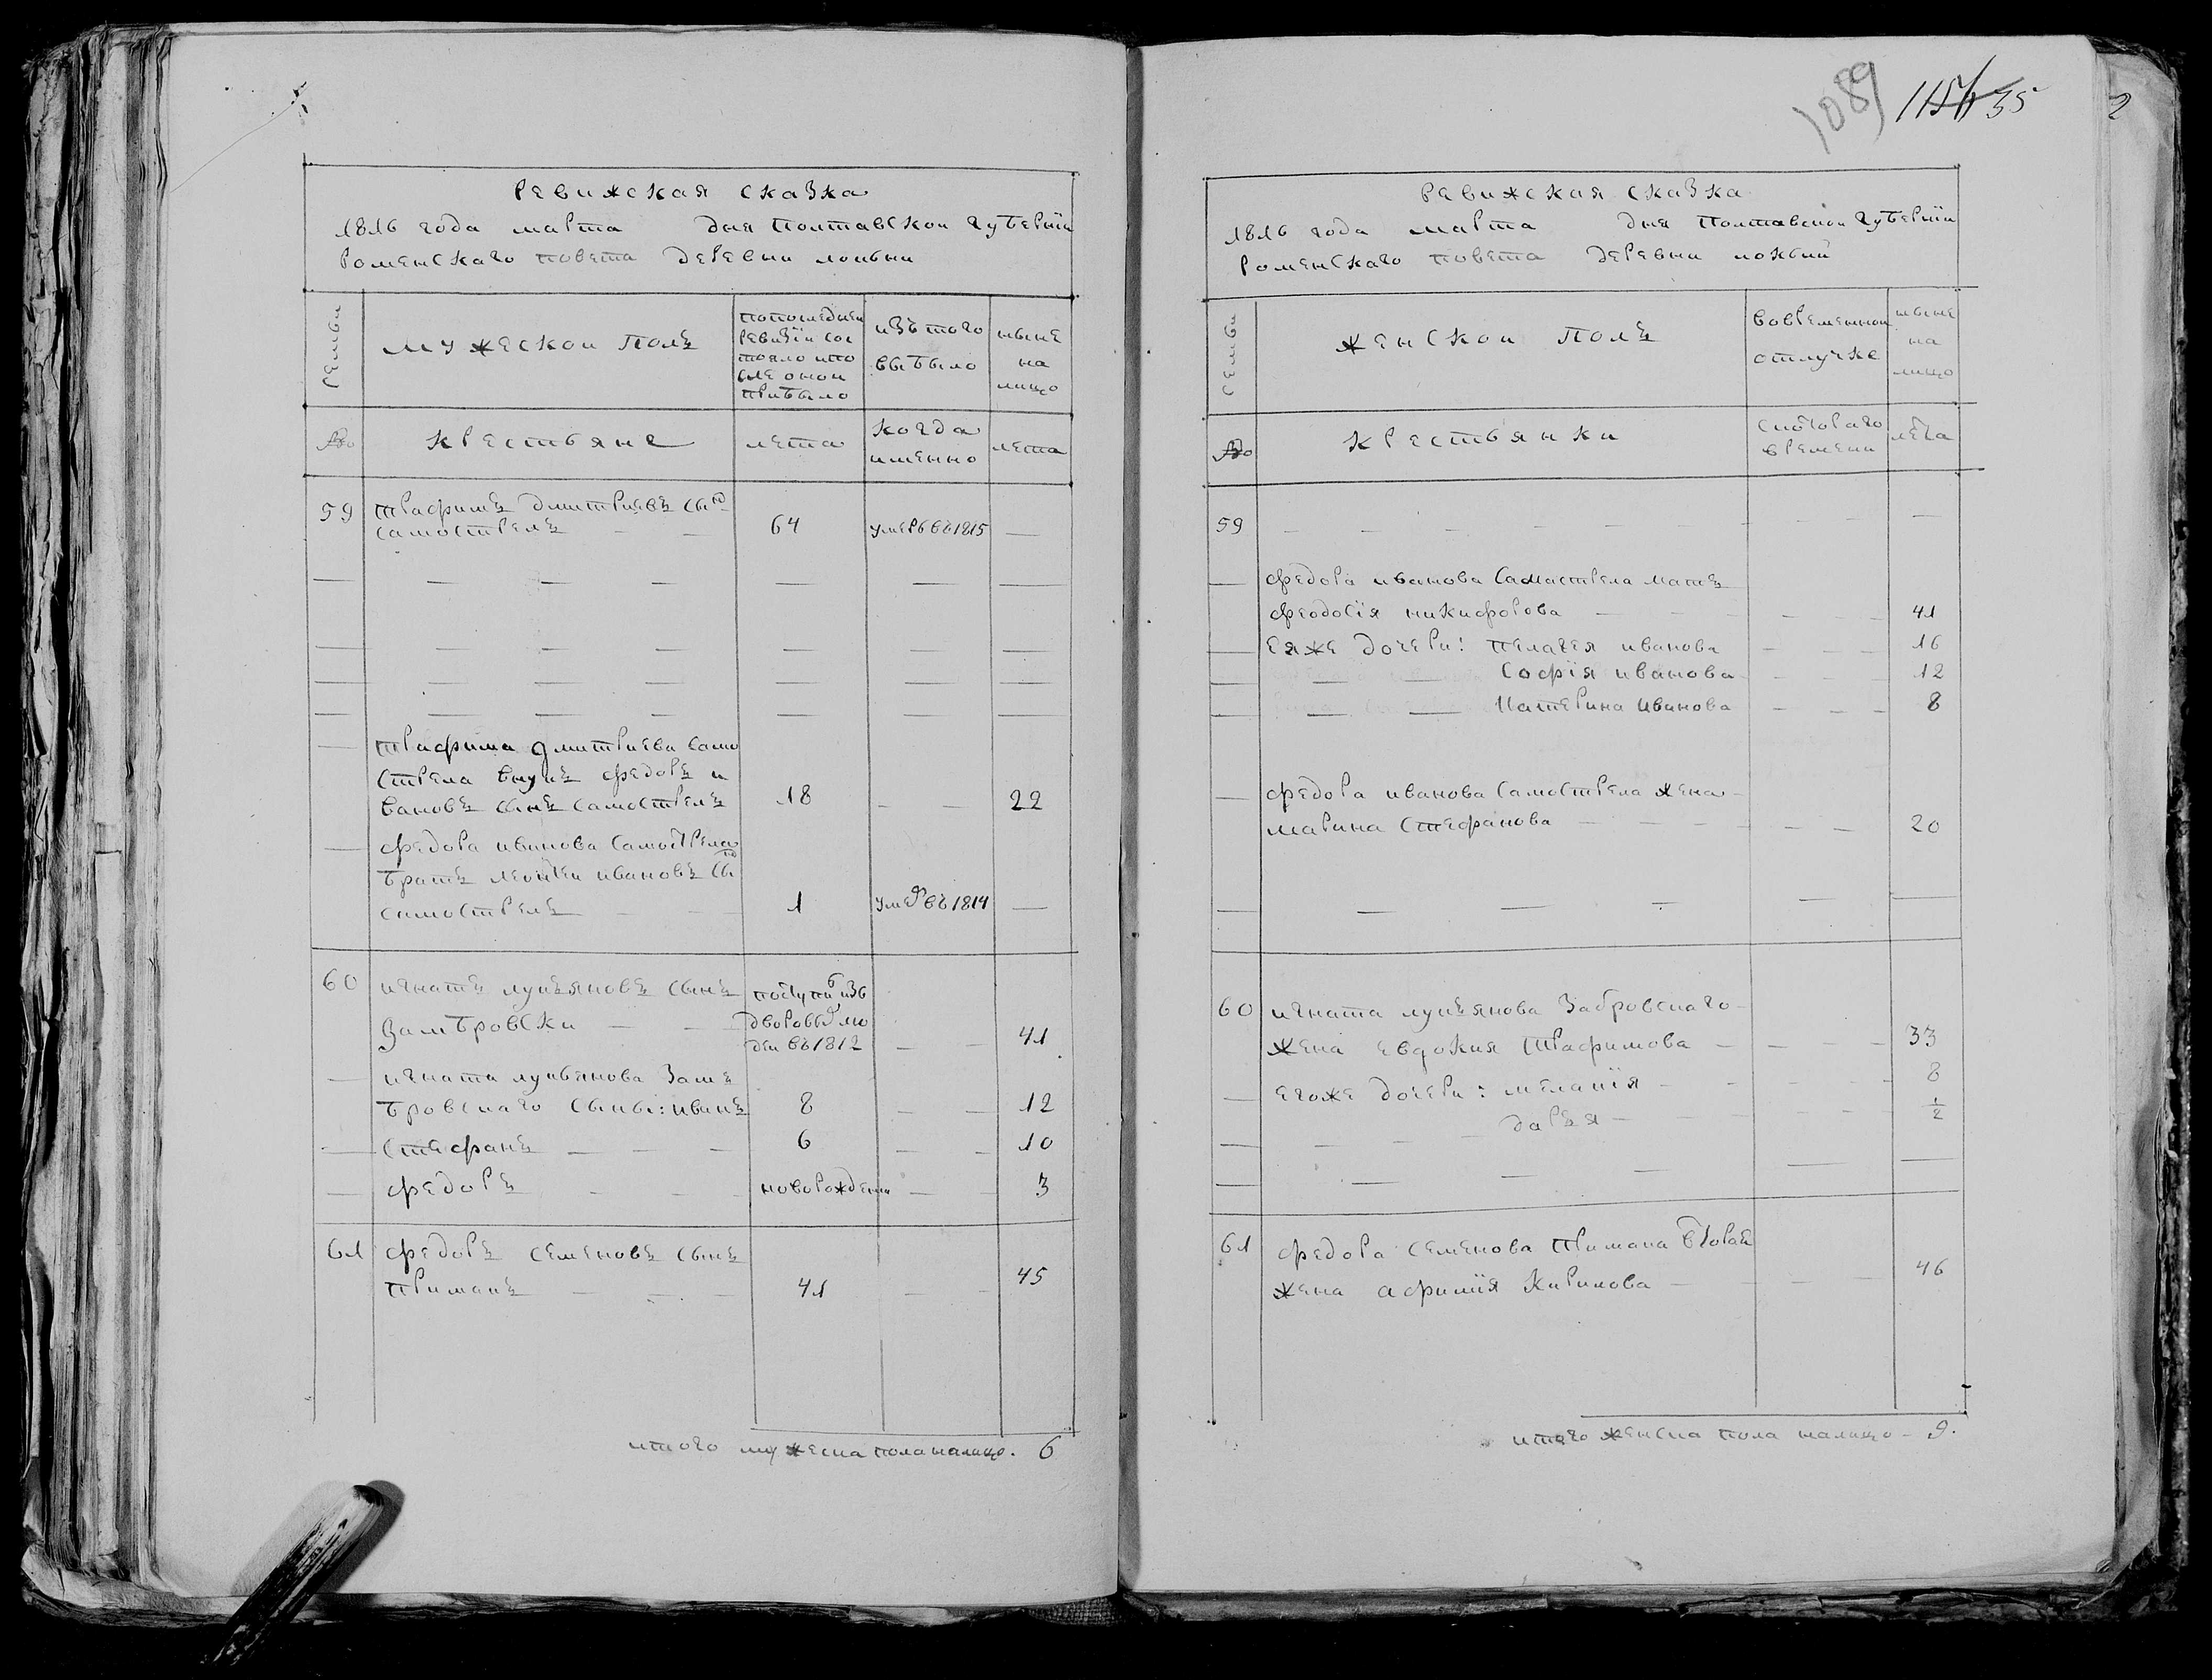 Ревижская сказка
1816 года марта дня полтавскои губернїи
роменскаго повета деревни локни
семьи
мужескои полъ
попоследнеи
ревизїи сос
тояло ипо
сле онои
прибыло
изъ того
выбыло
ныне
на
лицо
№
крестьяне
лета
когда
именно
лета
59 трафимъ дмитриевъ сынъ
самострелъ 64 умеръ въ1815
трафима дмитриева само
стрела внукъ федоръ и
вановъ сынъ самострелъ 18 22
федора иванова самострела
братъ ивановъ сынъ
самострелъ 1 умеръ въ1814
60 игнатъ лукъяновъ сынъ
замбровски
поступилъ изъ
дворовыхъ лю
деи въ1812
41
игната лукьянова заме
бровскаго сыны: иванъ 8 12
стефанъ 6 10
федоръ новорожденъ 3
61 федоръ семеновъ сынъ
примакъ 41 45
итого мужеска пола налицо. 6
1089
35
2
Ревижская сказка
1816 года марта дня полтавскои губернїи
роменскаго повета деревни локнии
семьи
женскои полъ
вовременнои
отлучке
ныне
на
лицо
№
крестьянки
скотораго
времени
лета
59
федора иванова самастрела матъ
феодосїя никифорова 41
еяже дочери: пелагея иванова 16
софїя иванова 12
катерина иванова 8
федора иванова самострела жена
марина стефанова 20
60 игната лукъянова забровскаго
жена евдокия трафимова 33
егоже дочери: меланїя 8
даръя 1/2
61 федора семенова примака вторая
жена афимїя кирилова 46
итого женска пола налицо - 9.